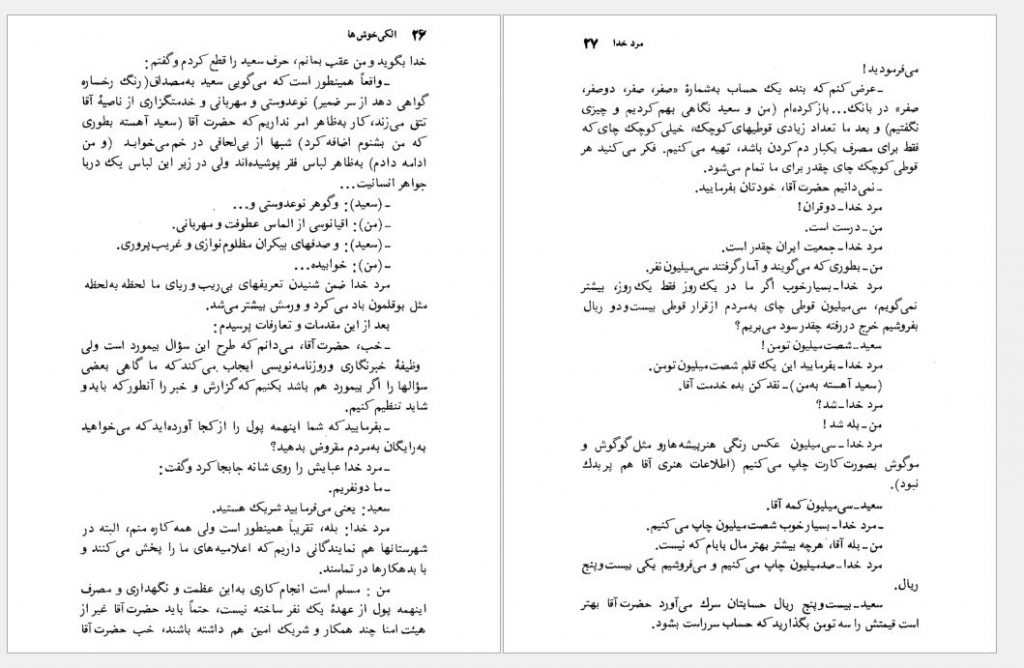 ۲۶ الکی‌خوش‌ها
خدا بگوید و من عقب بمانم، حرف سعید را قطع کردم و گفتم:
ـ واقعاً همینطور است که می‌گویی سعید به‌مصداق (رنگ رخساره
گواهی دهد از سر ضمیر) نوعدوستی و مهربانی و خدمتگزاری از ناصیهٔ آقا
تتق می‌زند، کار به‌ظاهر امر نداریم که حضرت آقا (سعید آهسته بطوری
که من بشنوم اضافه کرد) شبها از بی‌لحافی در خم می‌خوابد (و من
ادامه دادم) به‌ظاهر لباس فقر پوشیده‌اند ولی در زیر این لباس یک دریا
جواهر انسانیت...
ـ (سعید): و گوهر نوعدوستی و...
ـ (من): اقیانوسی از الماس عطوفت و مهربانی.
ـ (سعید): و صدفهای بیکران مظلوم‌نوازی و غریب‌پروری.
ـ (من): خوابیده...
مرد خدا ضمن شنیدن تعریفهای بی‌ریب و ریای ما لحظه به‌لحظه
مثل بوقلمون باد می‌کرد و ورمش بیشتر می‌شد.
بعد از این مقدمات و تعارفات پرسیدم:
ـ خب، حضرت آقا، می‌دانم که طرح این سؤال بیمورد است ولی
وظیفهٔ خبرنگاری و روزنامه‌نویسی ایجاب می‌کند که ما گاهی بعضی
سؤالها را اگر بیمورد هم باشد بکنیم که گزارش و خبر را آنطور که باید و
شاید تنظیم کنیم.
ـ بفرمایید که شما اینهمه پول را از کجا آورده‌اید که می‌خواهید
به‌رایگان به‌مردم مقروض بدهید؟
ـ مرد خدا عبایش را روی شانه جابجا کرد و گفت:
ـ ما دو نفریم.
سعید: یعنی می‌فرمایید شریک هستید.
مرد خدا: بله، تقریباً همینطور است ولی همه کاره منم، البته در
شهرستانها هم نمایندگانی داریم که اعلامیه‌های ما را پخش می‌کنند و
با بدهکارها در تماسند.
من : مسلم است انجام کاری به‌این عظمت و نگهداری و مصرف
اینهمه پول از عهدهٔ یک نفر ساخته نیست، حتماً باید حضرت آقا غیر از
هیئت امنا چند همکار و شریک امین هم داشته باشند، خب حضرت آقا
مرد خدا ۲۷
می‌فرمودید!
ـ عرض کنم که بنده یک حساب به‌شمارهٔ «صفر، صفر، دوصفر،
صفر» در بانک... باز کرده‌ام (من و سعید نگاهی بهم کردیم و چیزی
نگفتیم) و بعد ما تعداد زیادی قوطیهای کوچک، خیلی کوچک چای که
فقط برای مصرف یکبار دم کردن باشد، تهیه می‌کنیم. فکر می‌کنید هر
قوطی کوچک چای چقدر برای ما تمام می‌شود.
ـ نمی‌دانیم حضرت آقا، خودتان بفرمایید.
مرد خدا ـ دوقران!
من ـ درست است.
مرد خدا ـ جمعیت ایران چقدر است.
من ـ بطوری که می‌گویند و آمار گرفتند سی‌میلیون نفر.
مرد خدا ـ بسیار خوب اگر ما در یک روز فقط یک روز، بیشتر
نمی‌گویم، سی‌میلیون قوطی چای به‌مردم از قرار قوطی بیست‌و‌دو ریال
بفروشیم خرج دررفته چقدر سود می‌بریم؟
سعید ـ شصت میلیون تومن!
مرد خدا ـ بفرمایید این یک قلم شصت میلیون تومن.
(سعید آهسته به‌من) ـ نقد کن بده خدمت آقا.
مرد خدا ـ شد؟
من ـ بله شد!
مرد خدا ـ سی‌میلیون عکس رنگی هنرپیشه‌ها رو مثل گوگوش و
موگوش بصورت کارت چاپ می‌کنیم (اطلاعات هنری آقا هم پر بدک
نبود).
سعید ـ سی‌میلیون کمه آقا.
ـ مرد خدا ـ بسیار خوب شصت میلیون چاپ می‌کنیم.
من ـ بله آقا، هرچه بیشتر بهتر مال بابام که نیست.
مرد خدا ـ صدمیلیون چاپ می‌کنیم و می‌فروشیم یکی بیست‌و‌پنج
ریال.
سعید ـ بیست‌و‌پنج ریال حسابتان سرک می‌آورد حضرت آقا بهتر
است قیمتش را سه تومن بگذارید که حساب سرراست بشود.